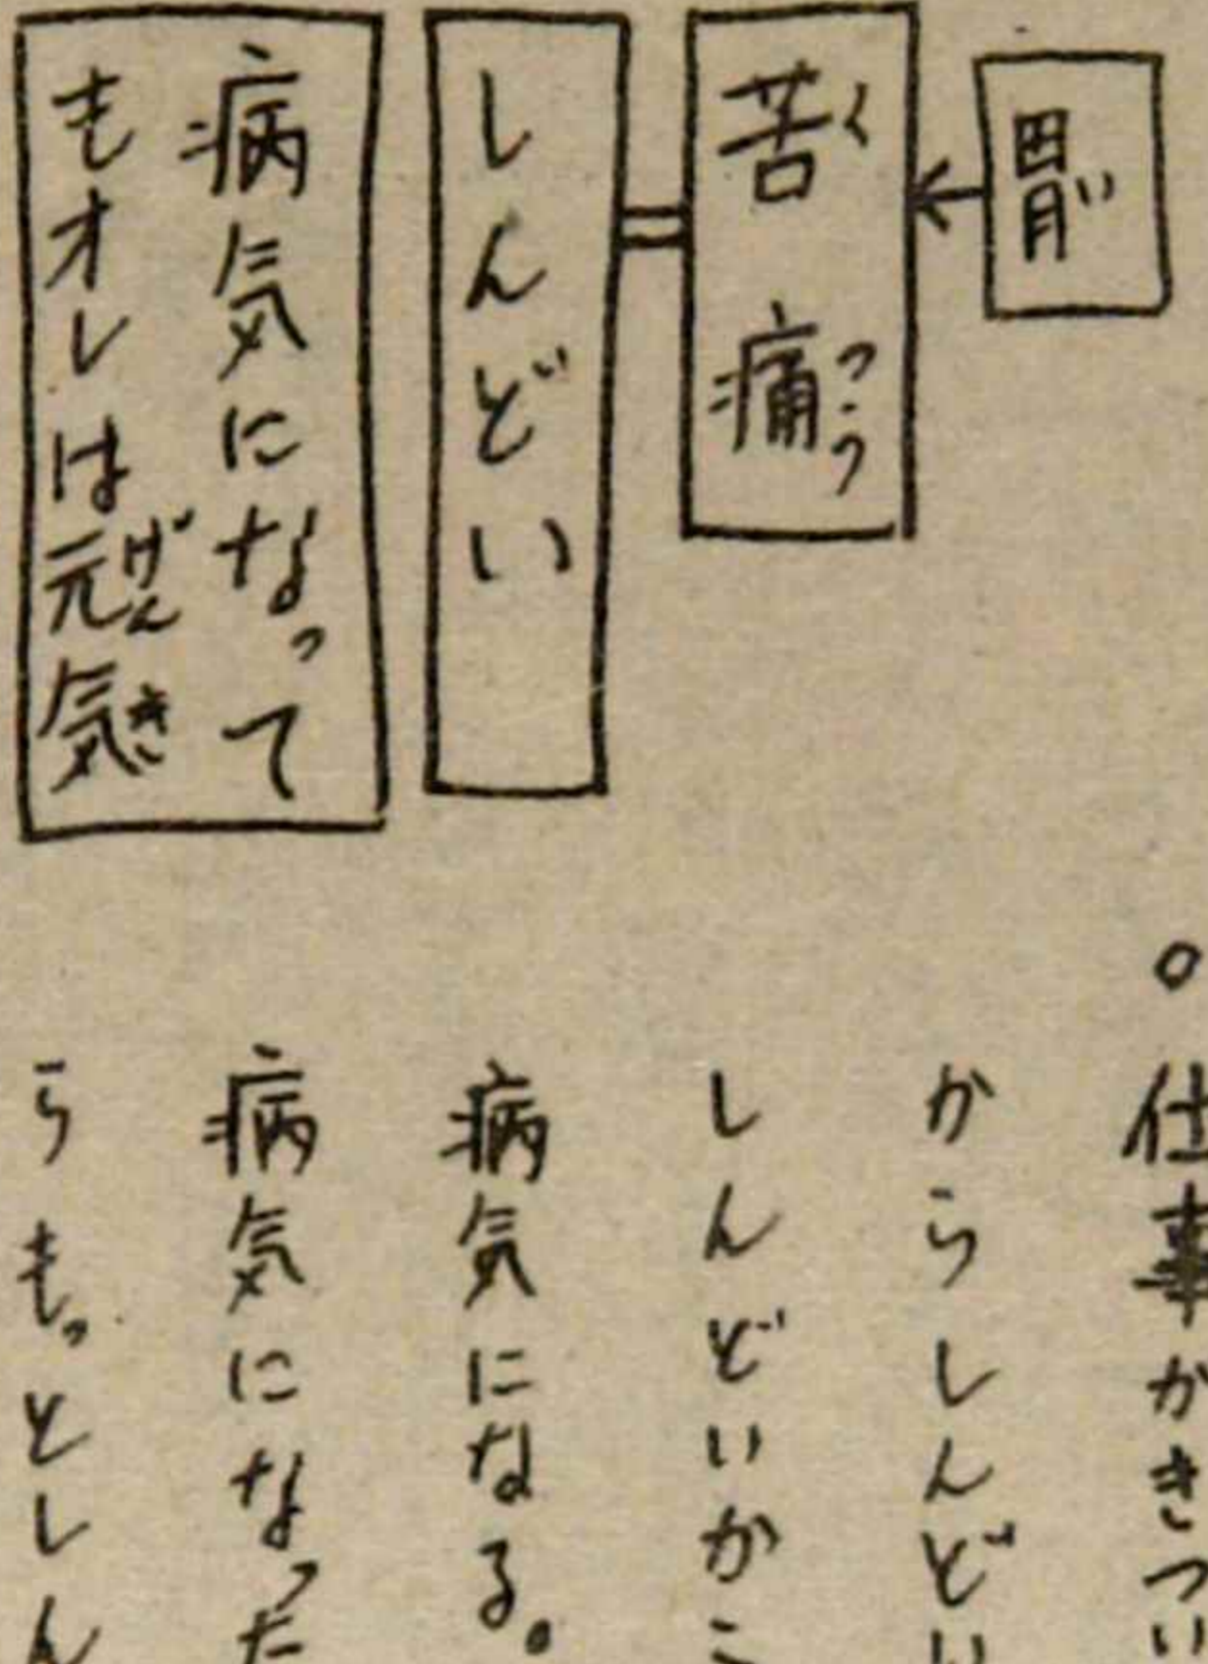 胃
い
苦痛
くつう
しんどい
病気になって
もオレは元気
げんき
。仕事がきつい
からしんどい
しんどいから
病気になる。
病気になった
らもっとしん